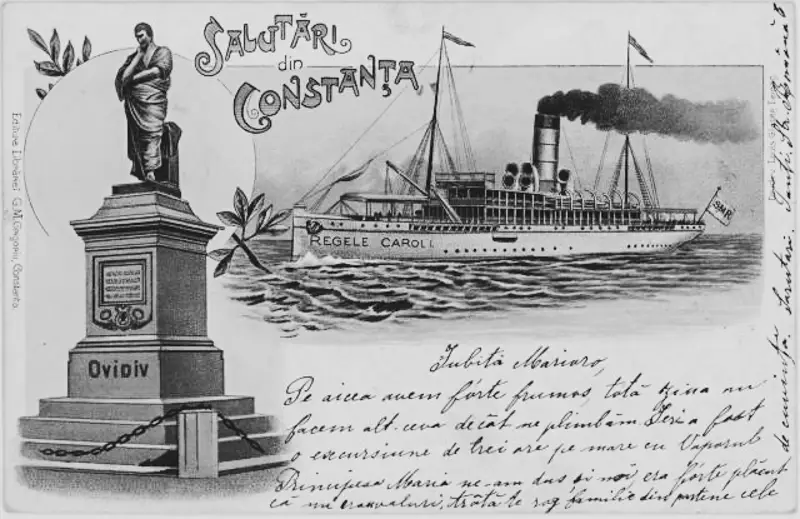 SALUTĂRI
din
CONSTANȚA
Editura Librăriei G. M. Grigoriu, Constanța
REGELE CAROL I.
SMR
OVIDIV
Iubită Marioro,
Pe aicea avem fórte frumos, totă ziua nu
facem alt-ceva decât ne plimbăm. Ieri a fost
o excursiune de trei ore pe mare cu Vaporul
Principesa Maria ne-am dus și noi, era fórte plăcut
că nu erau valuri, te rog familie din partene cele
de cuviință. Sărutări.